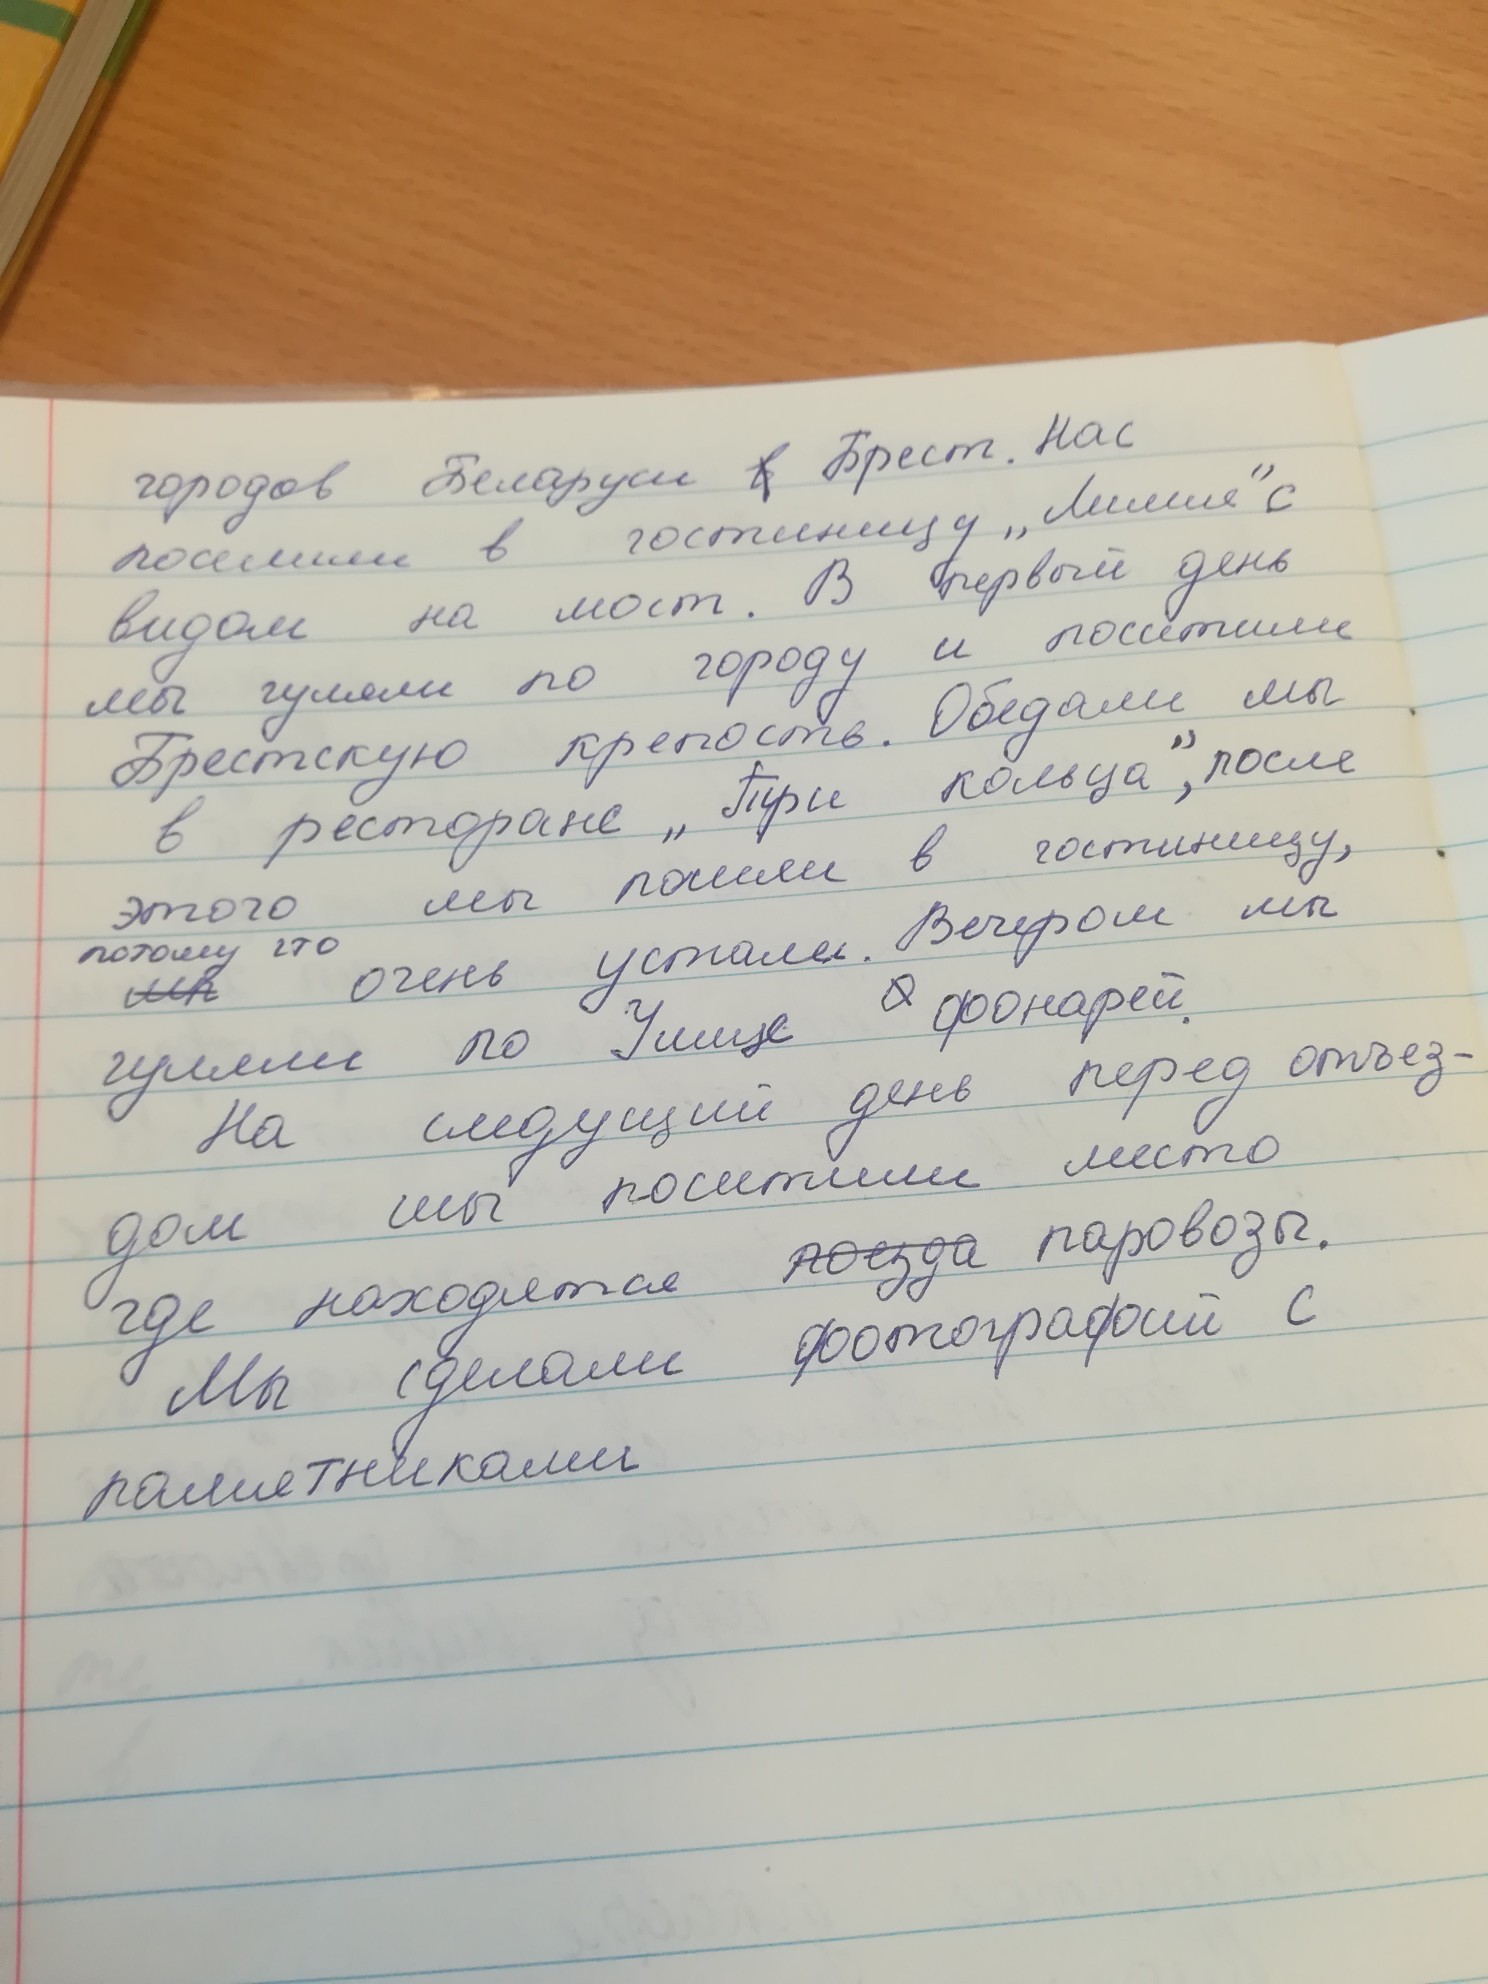 городов Беларуси Брест. Нас
поселили в гостиницу „Лилия" с
видом на мост. В первый день
мы гуляли по городу и посетили
Брестскую крепость. Обедали мы
в ресторане „Три кольца", после
этого мы пошли в гостиницу,
потому что
мы очень устали. Вечером мы
гуляли по Улице фонарей.
На следущий день перед отъез-
дом мы посетили место
где находятся поезда паровозы.
Мы сделали фотографий с
памятниками